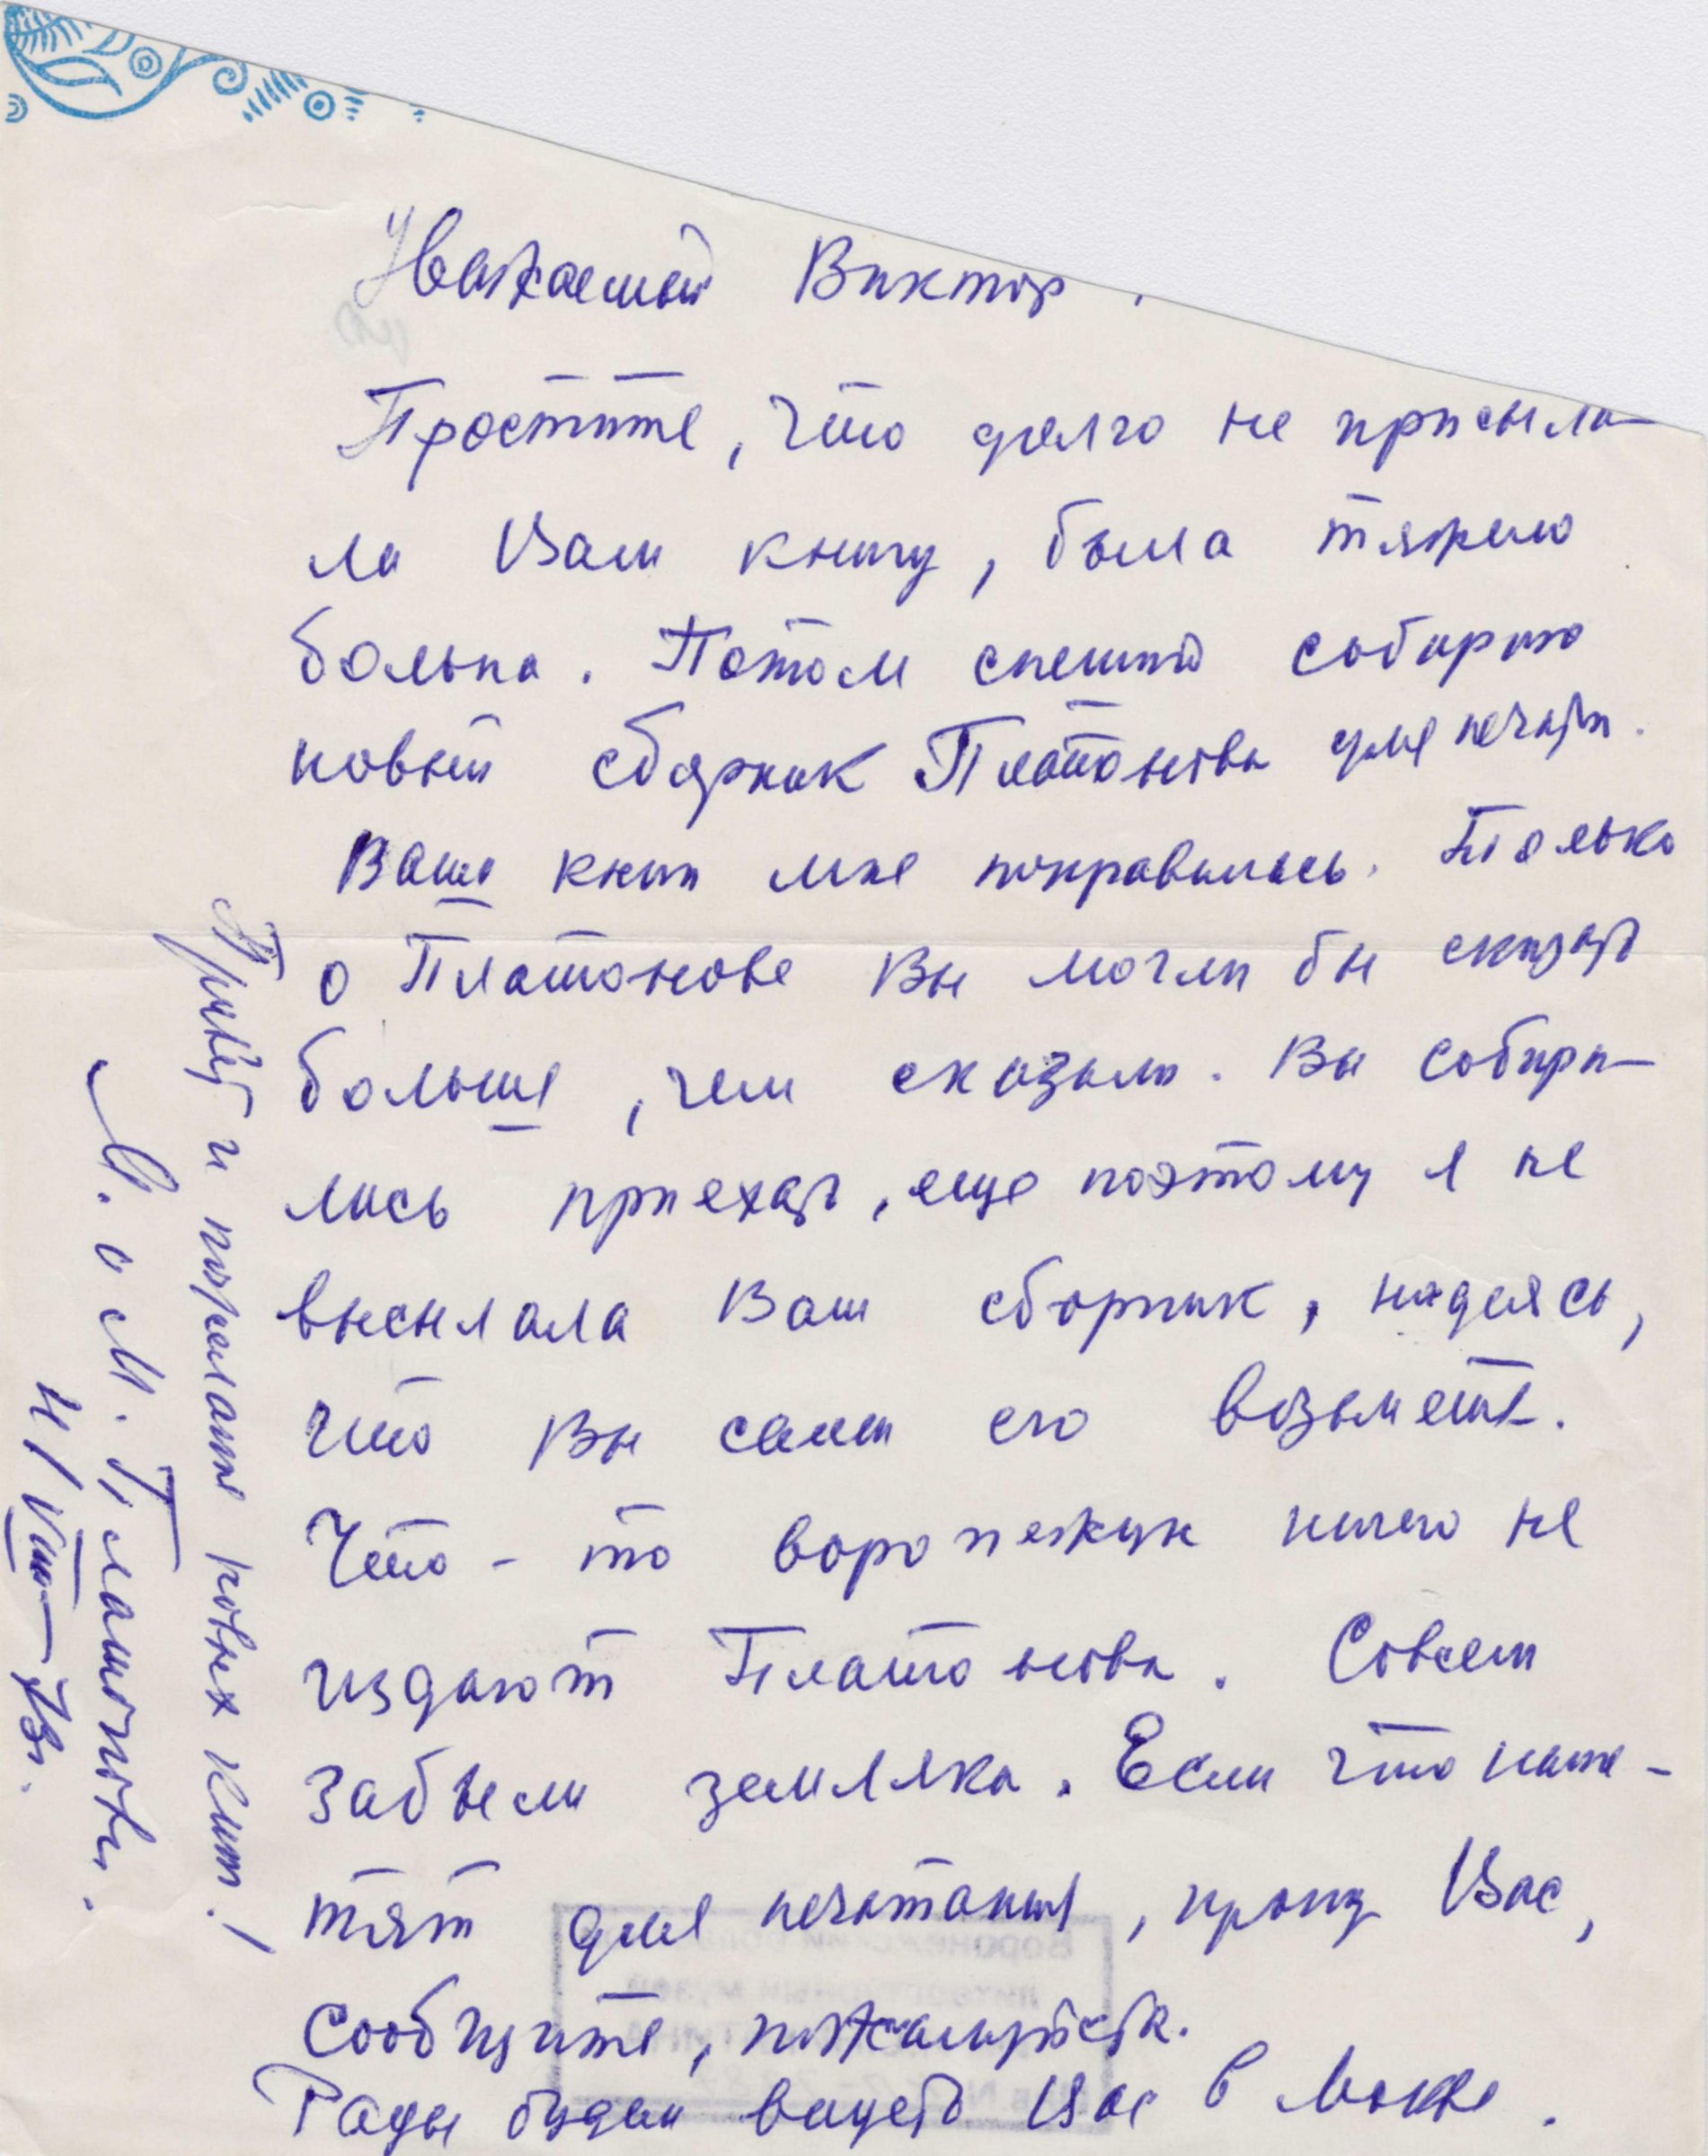 Уважаемый Виктор.
Простите, что долго не присыла-
ла Вам книгу, была тяжело
больна. Потом спешно собираю
новый сборник Платонова для печати.
Ваша книга мне понравилась. Только
о Платонове Вы могли бы сказать
больше, чем сказали. Вы собира-
лись приехать, еще поэтому я не
высылала Вам сборник, надеясь,
что Вы сами его возьмете.
Что-то воронежцы ничего не
издают Платонова. Совсем
забыли земляка. Если что наме-
тят для печатания, прошу Вас,
сообщите, пожалуйста.
Рады будем видеть Вас в Москве.
Привет и пожелания новых книг!
М. и М. Платоновы.
4/VIII-73г.